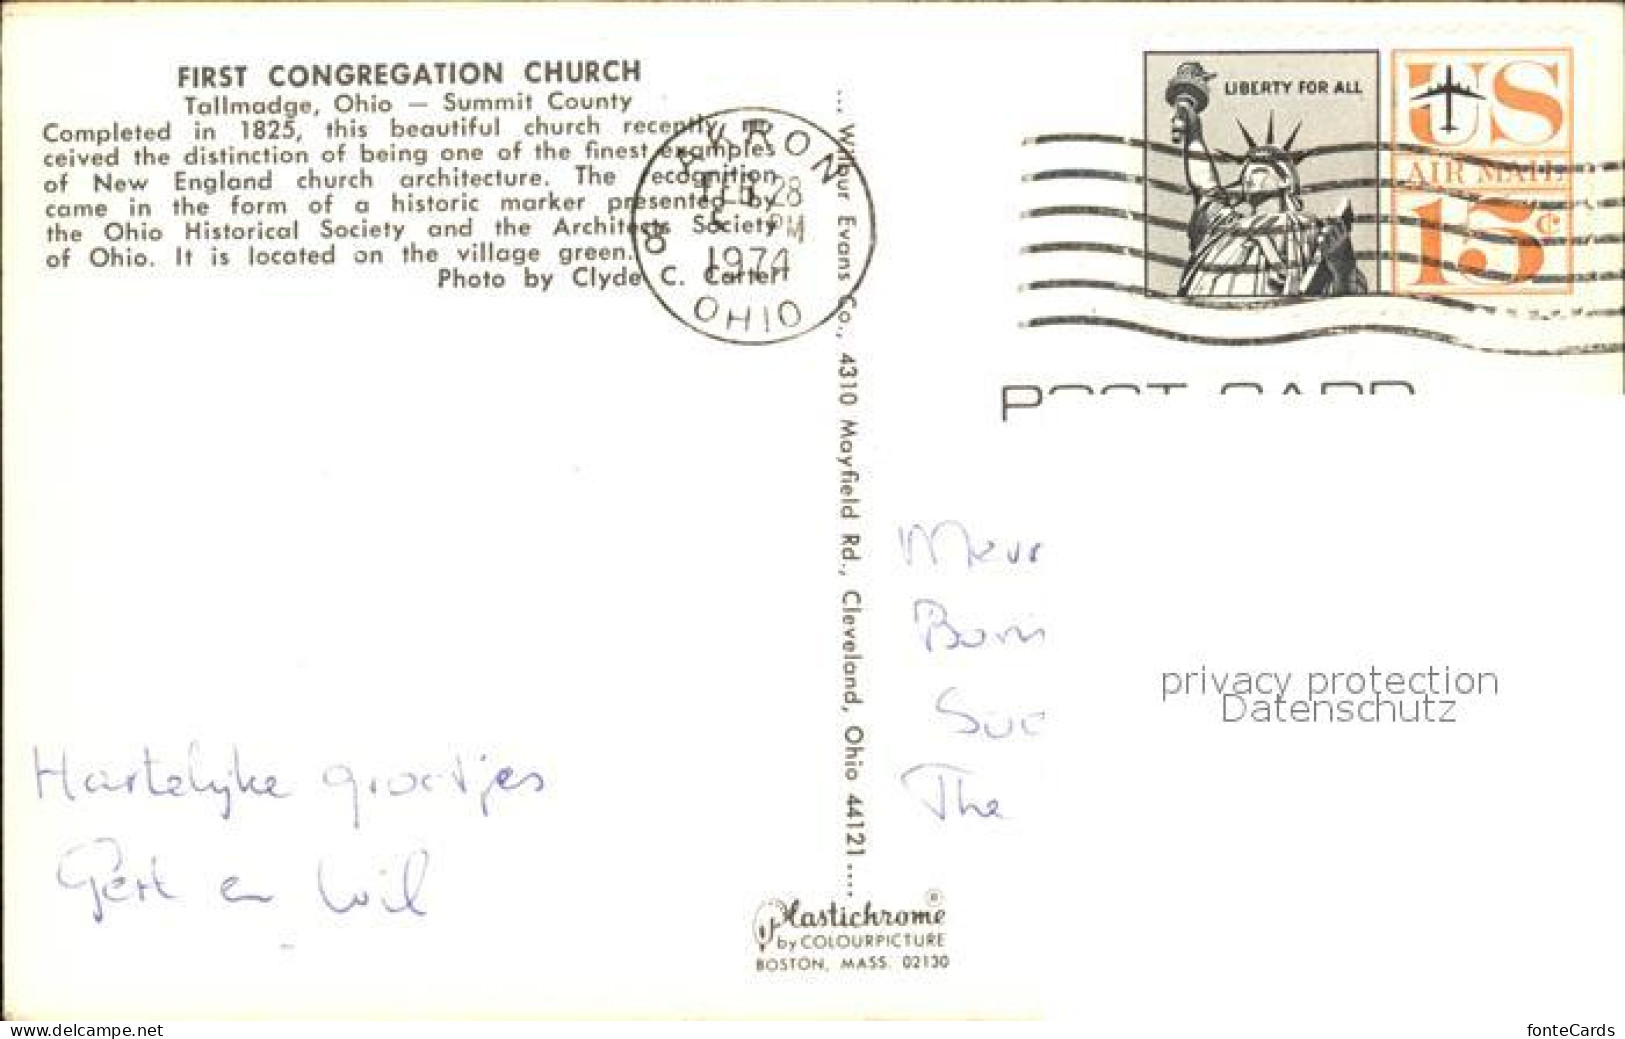 FIRST CONGREGATION CHURCH
Tallmadge, Ohio — Summit County
Completed in 1825, this beautiful church recently re-
ceived the distinction of being one of the finest examples
of New England church architecture. The recognition
came in the form of a historic marker presented by
the Ohio Historical Society and the Architects Society
of Ohio. It is located on the village green.
Photo by Clyde C. Carter
AKRON
FEB 28
PM
1974
OHIO
LIBERTY FOR ALL
US
AIR MAIL
15¢
POST CARD
... Wilbur Evans Co., 4310 Mayfield Rd., Cleveland, Ohio 44121 ....
Hartelijke groetjes
Gert en Wil
The
privacy protection
Datenschutz
Plastichrome®
by COLOURPICTURE
BOSTON, MASS. 02130
www.delcampe.net
fonteCards